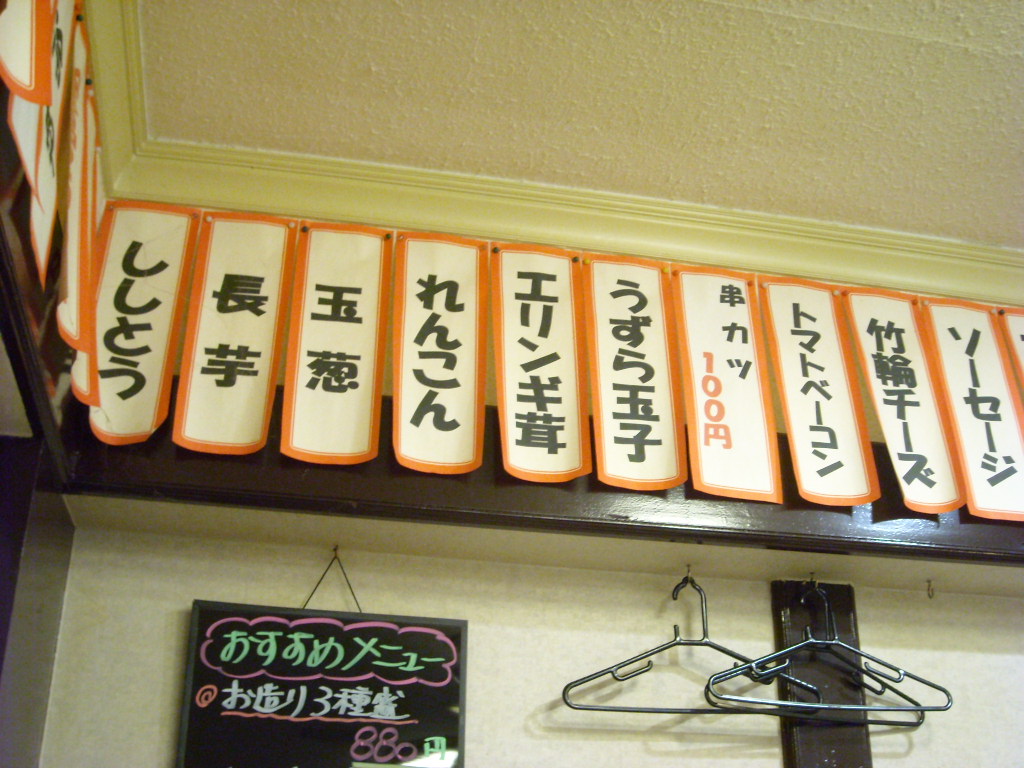 ししとう
長芋
玉葱
れんこん
エリンギ茸
うずら玉子
串カツ
100円
トマトベーコン
竹輪チーズ
ソーセージ
おすすめメニュー
お造り3種盛
880円